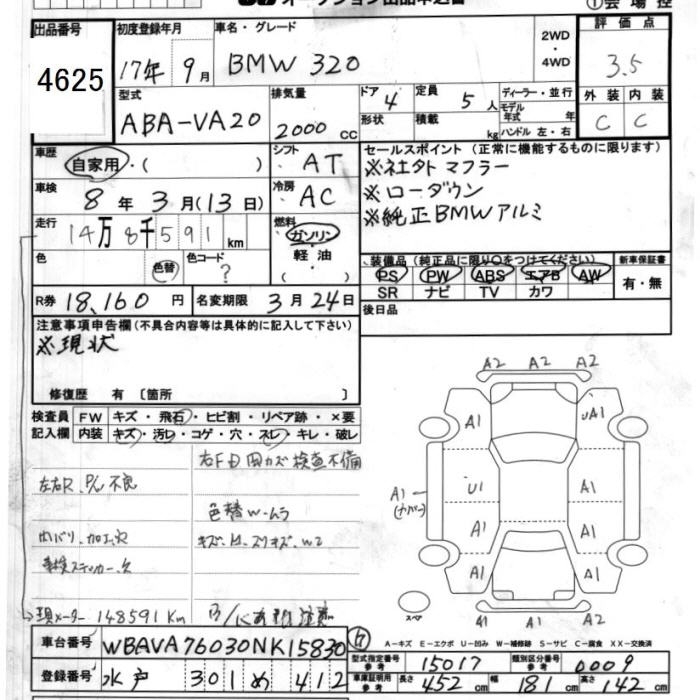 オークション出品申込書
①会場控
出品番号 初度登録年月 車名・グレード 2WD ・ 4WD 評価点
4625 17年 9月 BMW 320 3.5
型式 排気量 ドア 4 定員 5人 ディーラー・並行 外装 内装
ABA-VA20 2000 cc 形状 積載 kg モデル年式 年 C C
ハンドル 左・右
車歴 シフト セールスポイント (正常に機能するものに限ります)
自家用・( ) AT ※社外マフラー
車検 冷房 ※ローダウン
8年 3月(13日) AC ※純正BMWアルミ
走行 燃料
14万8千591km ガソリン・軽油・( )
色 色替 色コード ? 装備品 (純正品に限り○をつけてください) 新車保証書
PS PW ABS エアB AW 有・無
SR ナビ TV カワ
R券 18,160円 名変期限 3月24日 後日品
注意事項申告欄 (不具合内容等は具体的に記入して下さい)
※現状
修復歴 有 〔箇所 〕
検査員 FW キズ・飛石・ヒビ割・リペア跡・×要
記入欄 内装 キズ・汚レ・コゲ・穴・スレ・キレ・破レ
検査不備
左右R, P/L 不良
色替W・ムラ
車検ステッカー欠
現メーター 148591 Km
A2 A2 A2
A1 UA1
A1 (カバー) U1 A1
A1 A1
A1 A1
A1 A2
スペア
車台番号 WBAVA76030NK15830
A-キズ E-エクボ U-凹み W-補修跡 S-サビ C-腐食 XX-交換済
登録番号 水戸 301 め 412
型式指定番号 参考 15017 類別区分番号 参考 0009
車庫証明用 参考 長さ 452cm 幅 181cm 高さ 142cm